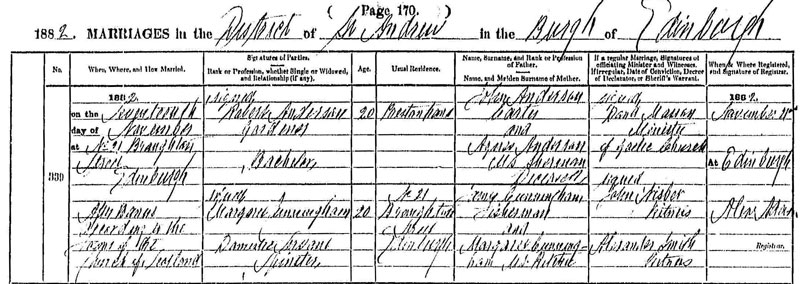 ( Page 170. )
1882. MARRIAGES in the District of St Andrew in the Burgh of Edinburgh
No.
When, Where, and How Married.
Signatures of Parties.
Rank or Profession, whether Single or Widowed, and Relationship (if any).
Age.
Usual Residence.
Name, Surname, and Rank or Profession of Father.
Name, and Maiden Surname of Mother.
If a regular Marriage, Signatures of officiating Minister and Witnesses.
If irregular, Date of Conviction, Decree of Declarator, or Sheriff's Warrant.
When & Where Registered, and Signature of Registrar.
339
1882
on the Seventeenth
day of November
at No 21 Broughton
Street
Edinburgh
After Banns
According to the
Forms of the
Church of Scotland
signed
Robert Anderson
Gardener
Bachelor
signed
Margaret Cunningham
Domestic Servant
Spinster
20
20
Prestonpans
No 21
Broughton
Street
Edinburgh
John Anderson
Carter
and
Agnes Anderson
M.S.
Deceased
Cunningham
Fisherman
and
Margaret Cunning-
ham M.S. Ritchie
signed
Masson
Minister
of Gaelic Church
signed
John Nisbet
Witness
Alexander Smith
Witness
1882
November
At Edinburgh
Registrar.